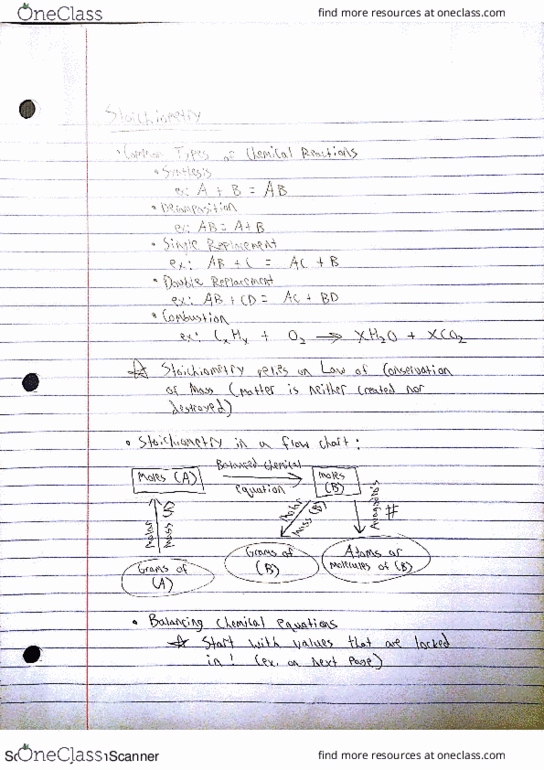 OneClass
find more resources at oneclass.com
Stoichiometry
• Common Types of Chemical Reactions
• Synthesis
ex: A + B = AB
• Decomposition
ex: AB = A+B
• Single Replacement
ex: AB + C = AC + B
• Double Replacement
ex: AB + CD = AC + BD
• Combustion
ex: CxHx + O2 → XH2O + XCO2
☆ Stoichiometry relies on Law of Conservation
of Mass (matter is neither created nor
destroyed)
• Stoichiometry in a flow chart:
Moles (A)
Balanced Chemical
equation
moles
(B)
Molar
Mass (A)
Molar
Mass (B)
Avogadro's
#
Grams of
(A)
Grams of
(B)
Atoms or
molecules of (B)
• Balancing Chemical equations
☆ Start with values that are locked
in! (ex. on Next Page)
OneClass
Scanner
find more resources at oneclass.com